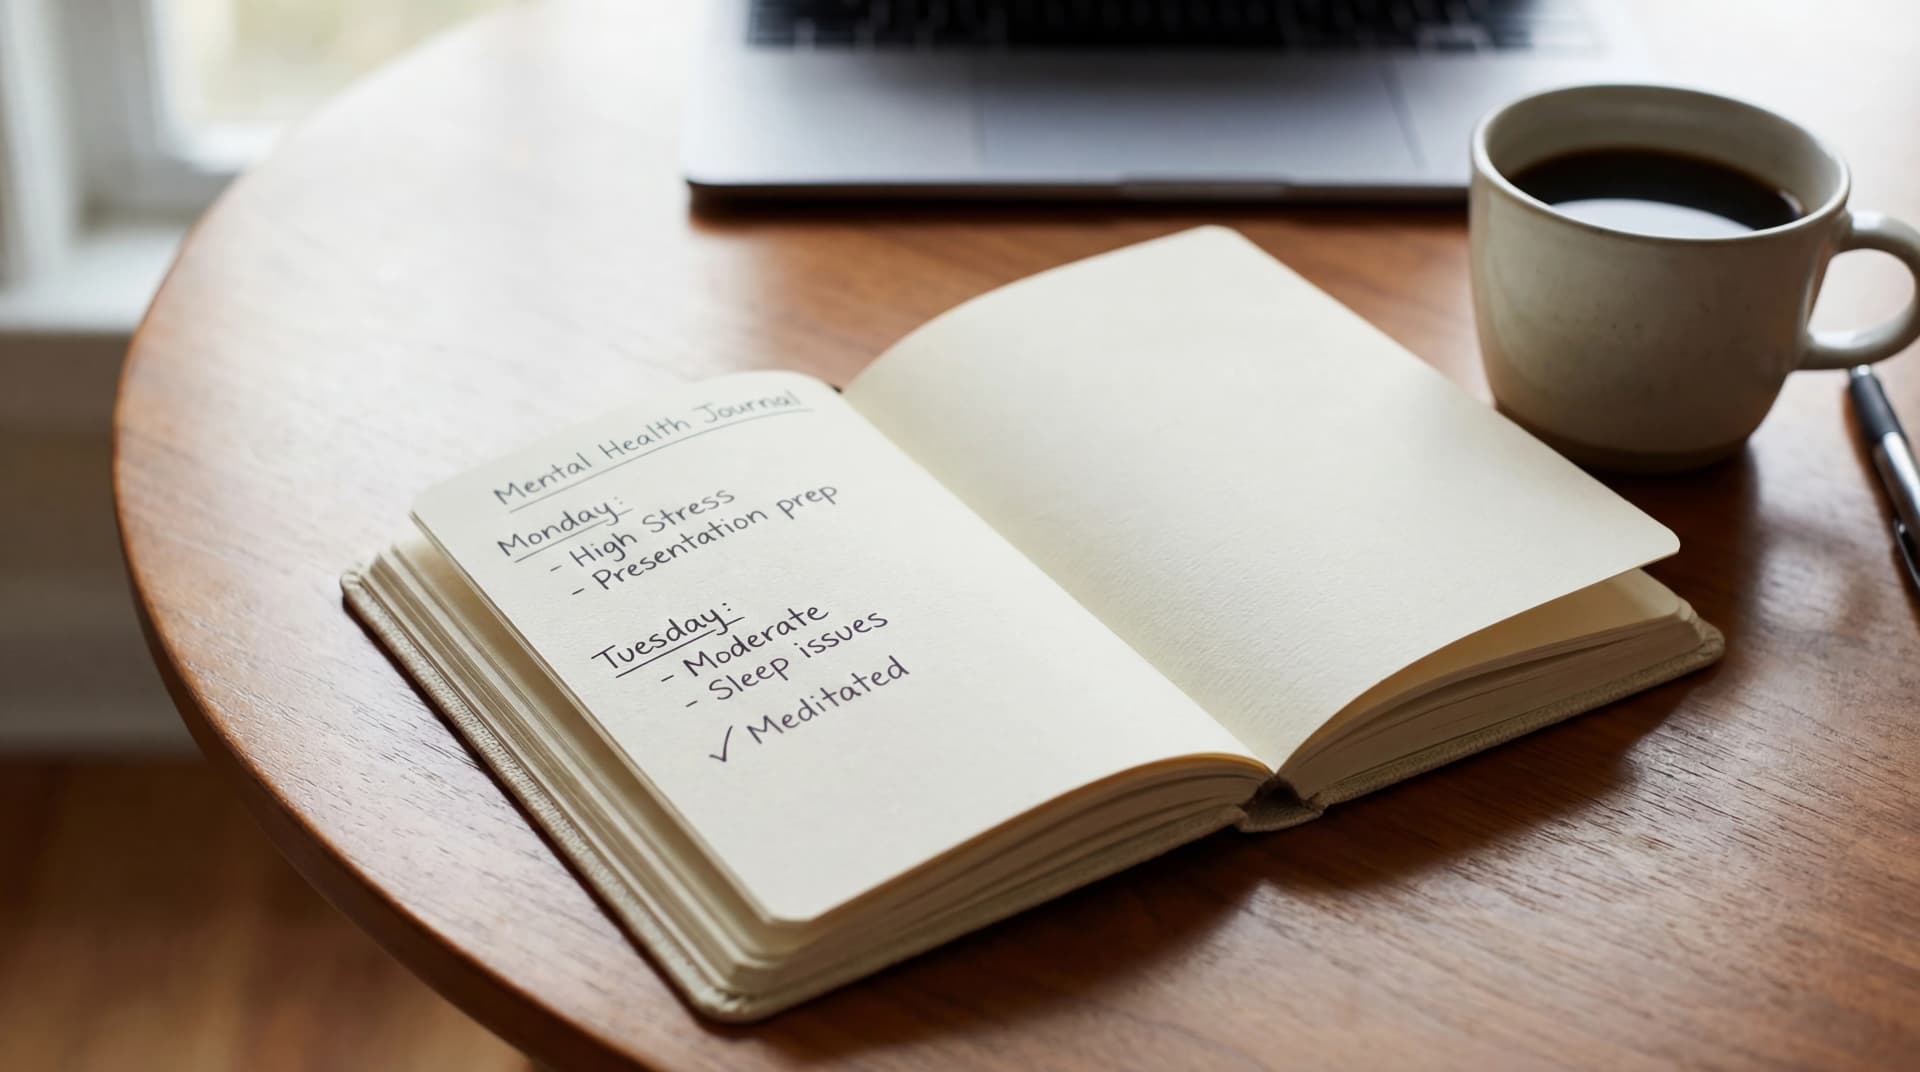 Mental Health Journal
Monday:
- High Stress
- Presentation prep
Tuesday:
- Moderate
- Sleep issues
✓ Meditated